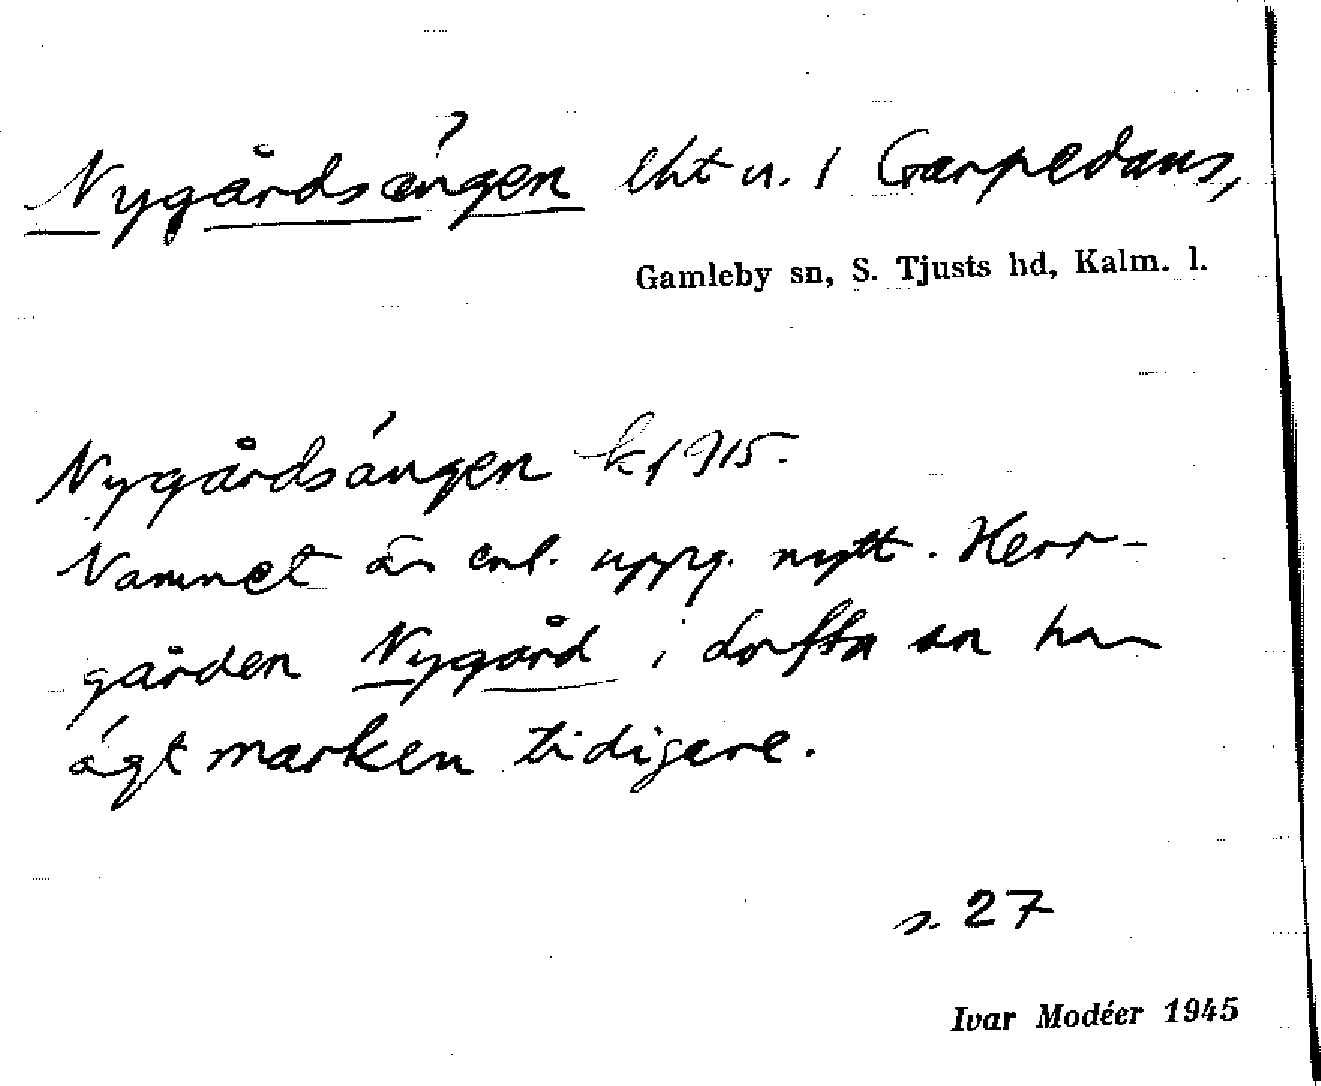 Nygårdsängen lht u. / Garpedans,
Gamleby sn, S. Tjusts hd, Kalm. l.
Nygårdsängen k 1915.
Namnet är enl. uppg. nytt. Herr-
gården Nygård i Lofta sn har
ägt marken tidigare.
s. 27
Ivar Modéer 1945